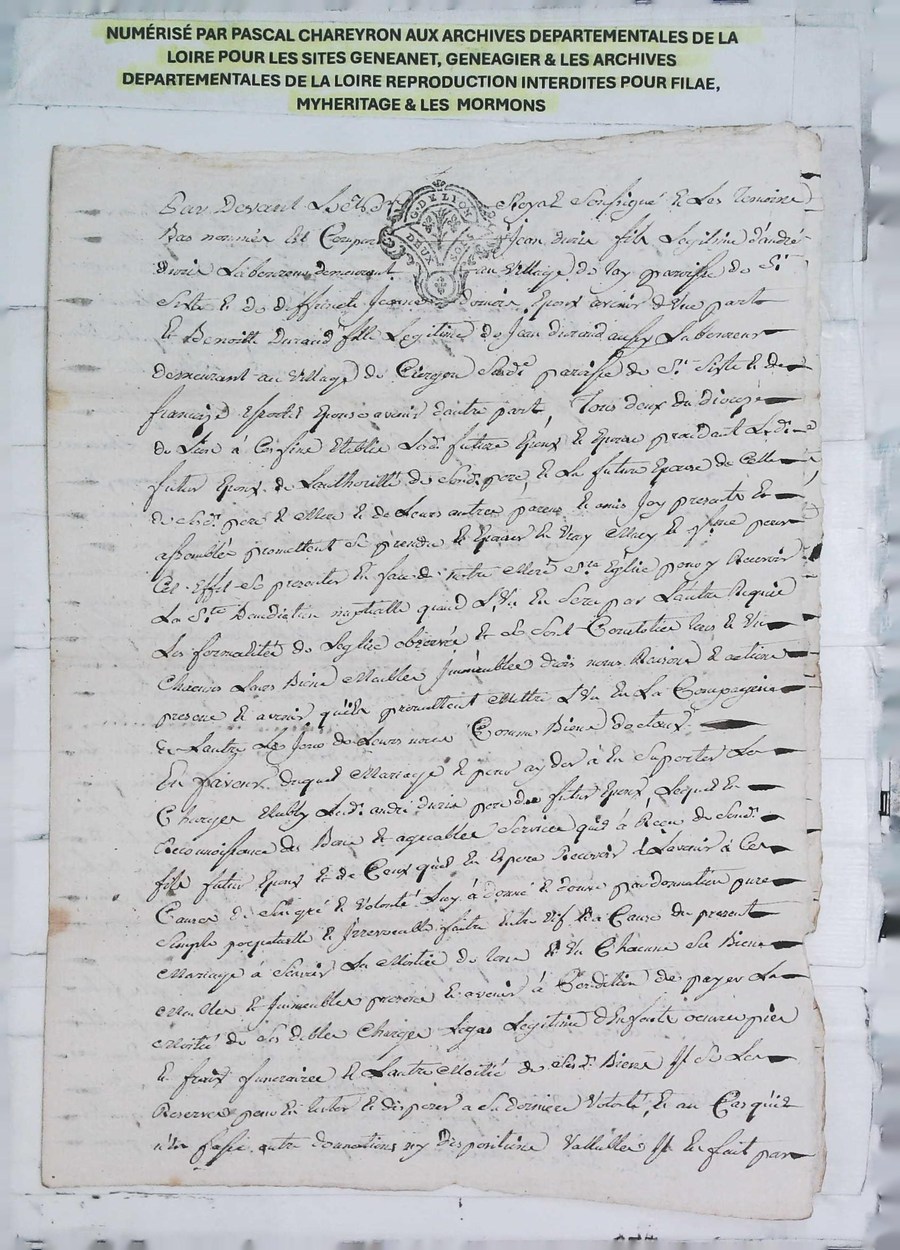 NUMÉRISÉ PAR PASCAL CHAREYRON AUX ARCHIVES DEPARTEMENTALES DE LA
LOIRE POUR LES SITES GENEANET, GENEAGIER & LES ARCHIVES
DEPARTEMENTALES DE LA LOIRE REPRODUCTION INTERDITES POUR FILAE,
MYHERITAGE & LES MORMONS
Par Devant Le Royal Soussigné et Les Temoins
G.D.LYON
DEUX SOLS
Bas nommés Est Compar Jean duris fils Legitime d'andré
duris Laboureur demeurant au Village de Jay parroisse de St
Sixte et de deffuncte Jeanne Epoux avenir d'une part
Et Benoitte Durand fille Legitime de Jean durand aussy Laboureur
Demeurant au Village de parroisse de St Sixte et de
françoise Epouse avenir d'autre part, Tous deux du diocese
de Lion futurs Epoux et Epouse proced'ant Led.
futur Epoux de Lauthorité de Sond. pere, et La future Epouse de Celle
de Sesd. pere et Mere et de Leurs autres parens et amis Icy presents et
assemblés promettent se prendre et Epouser En Vray Mary et feme pour
Cet Effet se presenter En face de notre Mere Ste Eglise pour y Recevoir
La Ste Benediction nuptialle quand L'Un En Sera par L'autre Requis
Les formalités de Leglise observée et se sont Constitué
Chacuns Leurs Biens Meubles Immeubles droits noms Raisons et actions
presens et avenir qu'ils promettent Mettre L'Un En La Compagnie
de Lautre Les Jour de Leurs noces Comme Biens
En faveur duquel Mariage et pour ayder à En Suporter Les
Charges Etably Led. andré duris pere du futur Epoux, Lequel En
Reconnoissance des Bons et agreables Services quil à Reçu de Sond.
fils futur Epoux et de Ceux quil En Espere Recevoir à L'avenir à Ces
Causes de Son gré et Volonté Luy à donné et donne par donnation pure
Simple perpetuelle et Irrevocable faitte Entre Vif Et a Cause du present
Mariage à Scavoir La Moitié de Tous et Un Chacuns Ses Biens
Meubles et Immeubles presens et avenir à Condition de payer La
Moitié de Ses debtes Charges Legas Legitime d'Enfants oeuvres pies
Et fraix funeraires Et Lautre Moitié de Sesd. Biens Il Se Les
Reserve pour En tester et disposer a Sa derniere Volonté, Et au Cas quil
n'en fasse autre donnations ny Dispositions Vallables Il En fait par